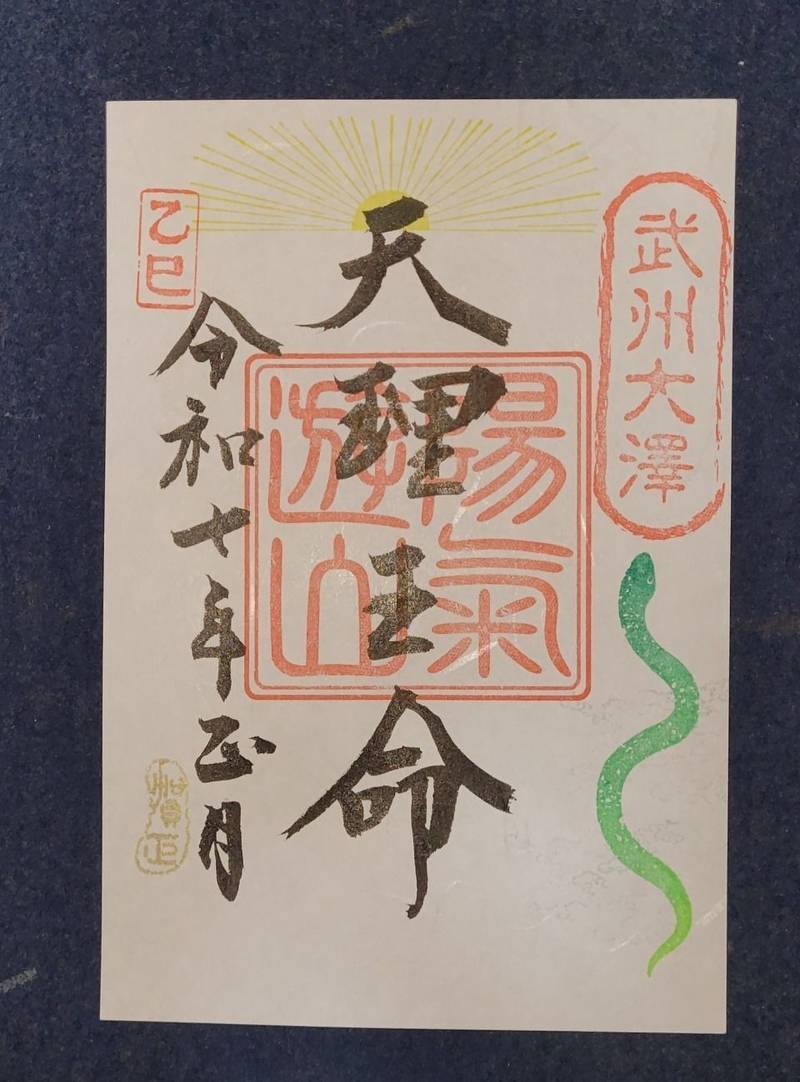 武州大澤
天理王命
陽氣
遊山
乙巳
令和七年正月
賀正